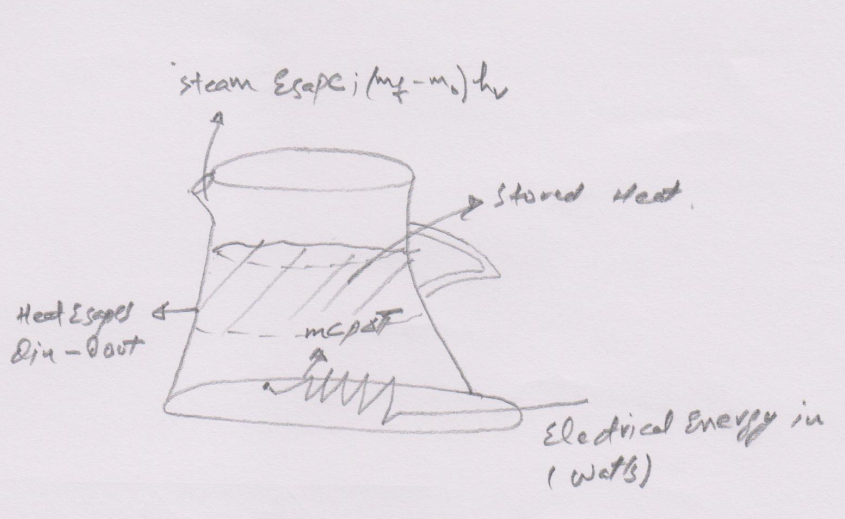 steam Esape ; (mf - mo) hv
Stored Heat.
Heat Esapes
Qin - Qout
mcpΔT
Electrical Energy in
(Watts)